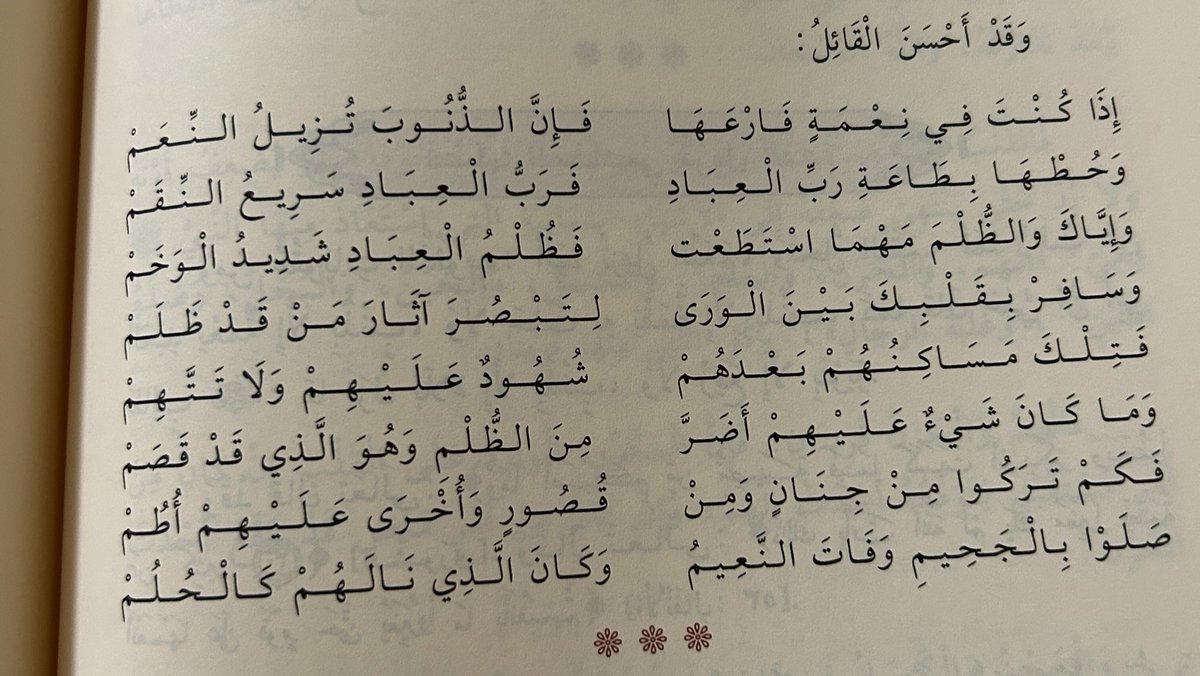 وَقَدْ أَحْسَنَ الْقَائِلُ:
إِذَا كُنْتَ فِي نِعْمَةٍ فَارْعَهَا فَإِنَّ الذُّنُوبَ تُزِيلُ النِّعَمْ
وَحُطْهَا بِطَاعَةِ رَبِّ الْعِبَادِ فَرَبُّ الْعِبَادِ سَرِيعُ النِّقَمْ
وَإِيَّاكَ وَالظُّلْمَ مَهْمَا اسْتَطَعْت فَظُلْمُ الْعِبَادِ شَدِيدُ الْوَخَمْ
وَسَافِرْ بِقَلْبِكَ بَيْنَ الْوَرَى لِتَبْصُرَ آثَارَ مَنْ قَدْ ظَلَمْ
فَتِلْكَ مَسَاكِنُهُمْ بَعْدَهُمْ شُهُودٌ عَلَيْهِمْ وَلَا تَتَّهِمْ
وَمَا كَانَ شَيْءٌ عَلَيْهِمْ أَضَرَّ مِنَ الظُّلْمِ وَهُوَ الَّذِي قَدْ قَصَمْ
فَكَمْ تَرَكُوا مِنْ جِنَانٍ وَمِنْ قُصُورٍ وَأُخْرَى عَلَيْهِمْ أُطُمْ
صَلَوْا بِالْجَحِيمِ وَفَاتَ النَّعِيمُ وَكَانَ الَّذِي نَالَهُمْ كَالْحُلُمْ